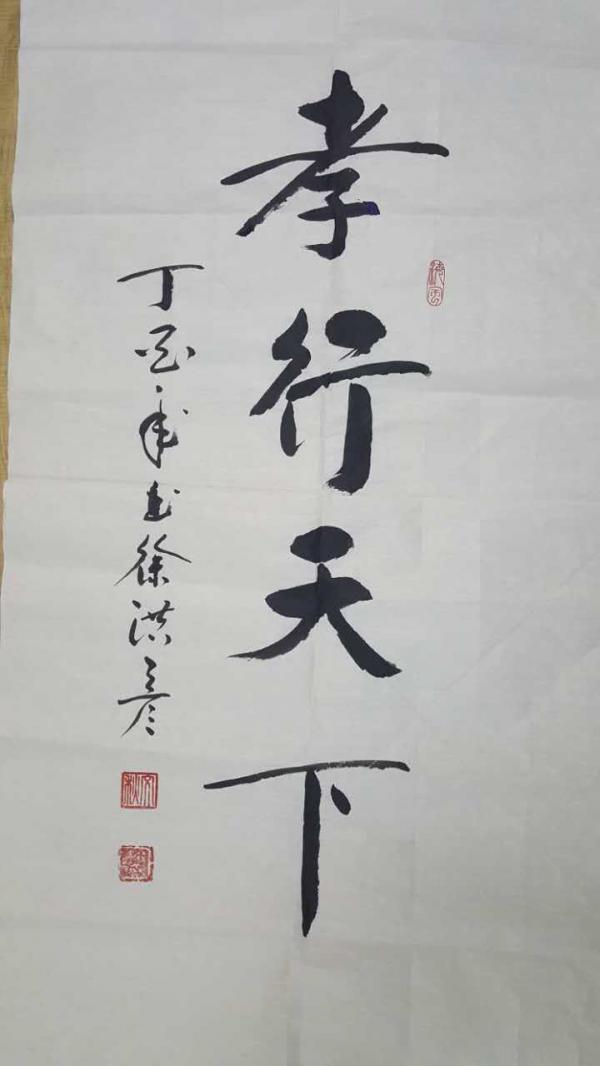 孝行天下
丁酉年书徐洪彦